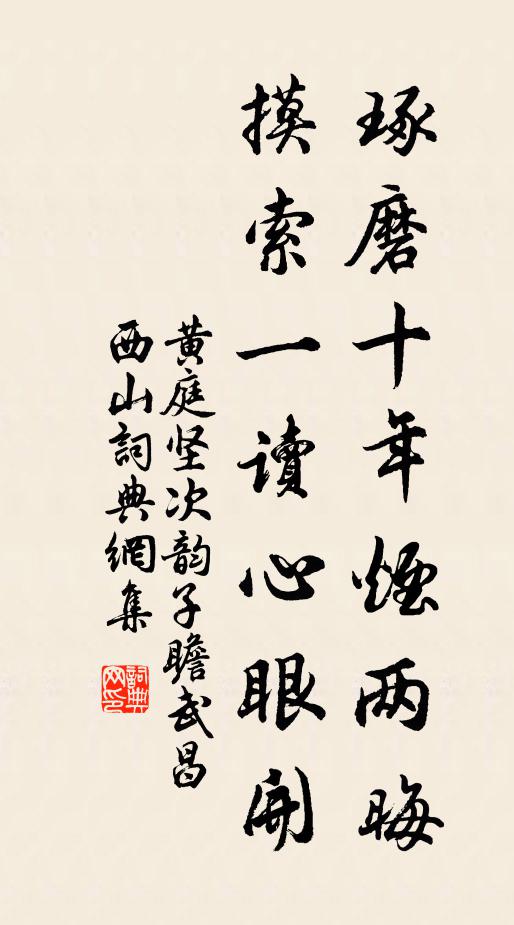 琢磨十年煙两晦
摸索一讀心眼開
黄庭坚次韵子瞻武昌
西山詞典網集
詞典
网印